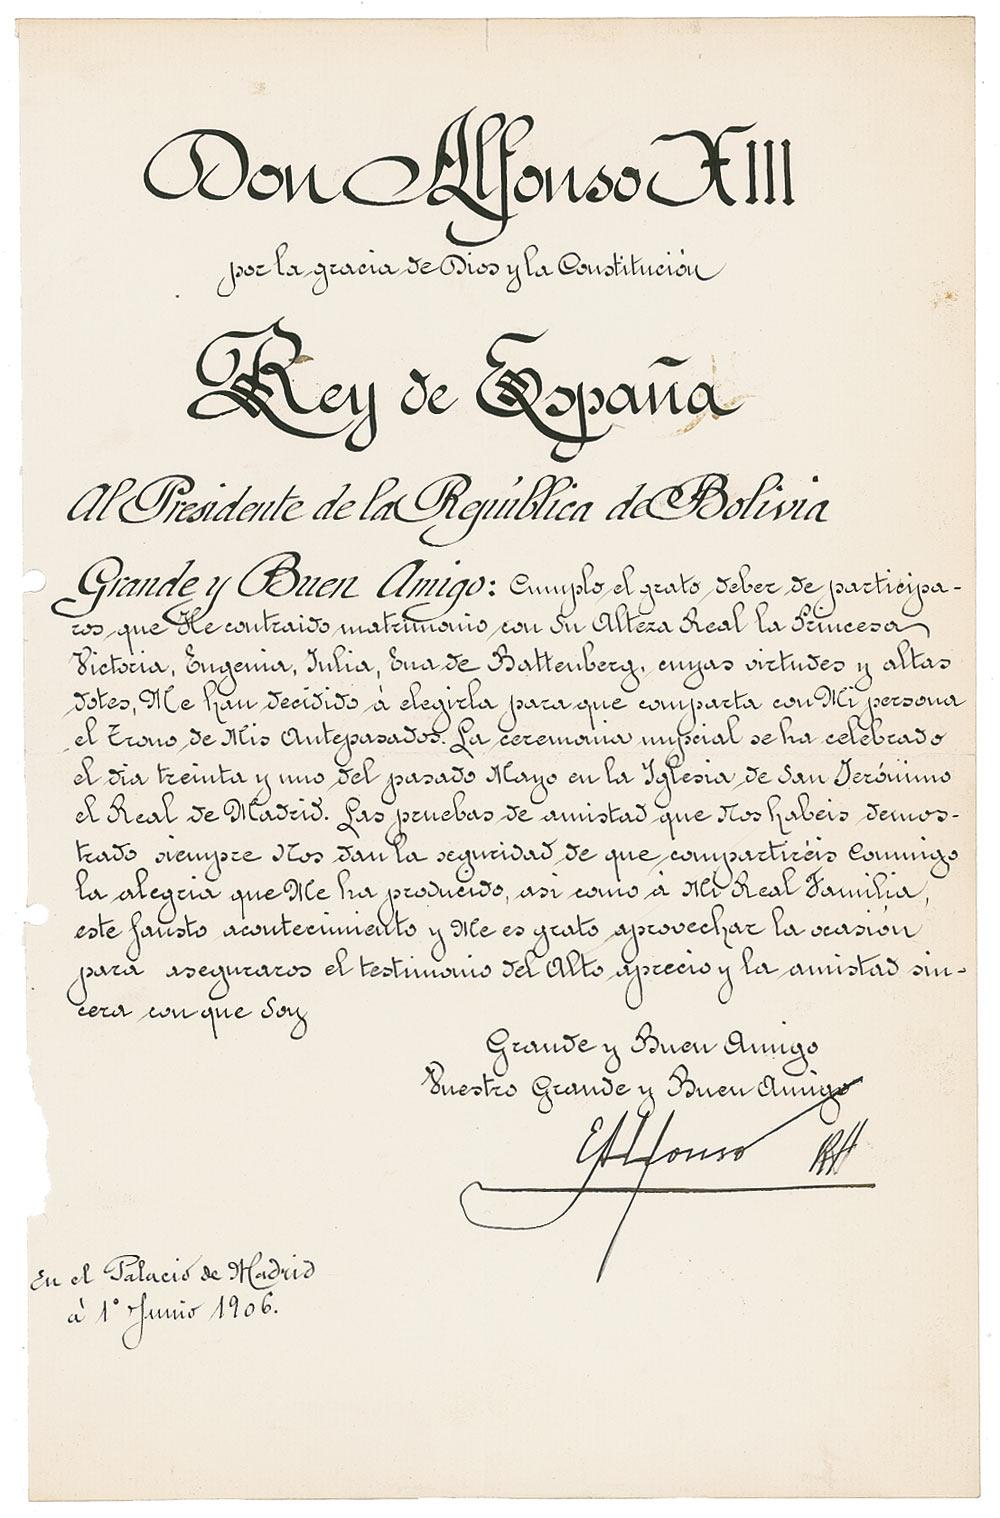 Don Alfonso XIII
por la gracia de Dios y la Constitución
Rey de España
Al Presidente de la República de Bolivia
Grande y Buen Amigo: Cumplo el grato deber de participa-
ros que He contraido matrimonio con Su Alteza Real la Princesa
Victoria, Eugenia, Julia, Ena de Battenberg, cuyas virtudes y altas
dotes, Me han decidido à elegirla para que comparta con Mi persona
el Trono de Mis Antepasados. La ceremonia nupcial se ha celebrado
el dia treinta y uno del pasado Mayo en la Iglesia de San Jerónimo
el Real de Madrid. Las pruebas de amistad que Nos habeis demos-
trado siempre Nos dan la seguridad de que compartiréis Conmigo
la alegria que Me ha producido, asi como à Mi Real Familia,
este fausto acontecimiento y Me es grato aprovechar la ocasión
para aseguraros el testimonio del Alto aprecio y la amistad sin-
cera con que Soy
Grande y Buen Amigo
Vuestro Grande y Buen Amigo
Alfonso
En el Palacio de Madrid
à 1º Junio 1906.